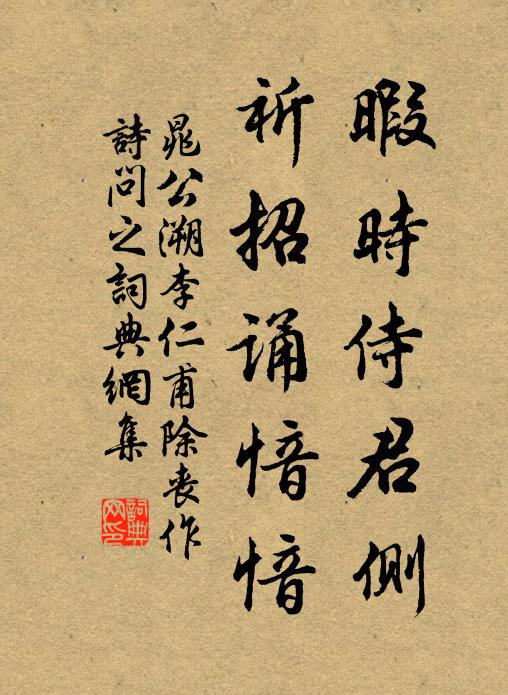 暇時侍君側
祈招誦愔愔
晁公溯李仁甫除丧作
詩問之詞典網集
詞典網印